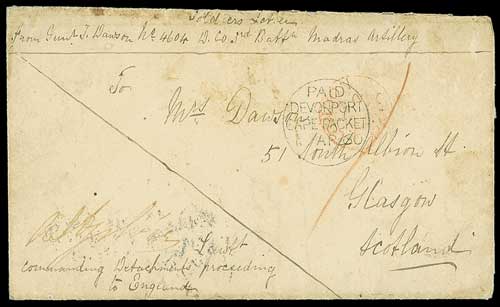 Soldiers Letter
From Gunr T. Dawson No 4604 D. Co 3rd Battn Madras Artillery
To
Mrs Dawson
51 South Albion St.
Glasgow
Scotland
PAID
DEVONPORT
CAPE PACKET
AP 30
Lieut
commanding Detachments proceeding
to England